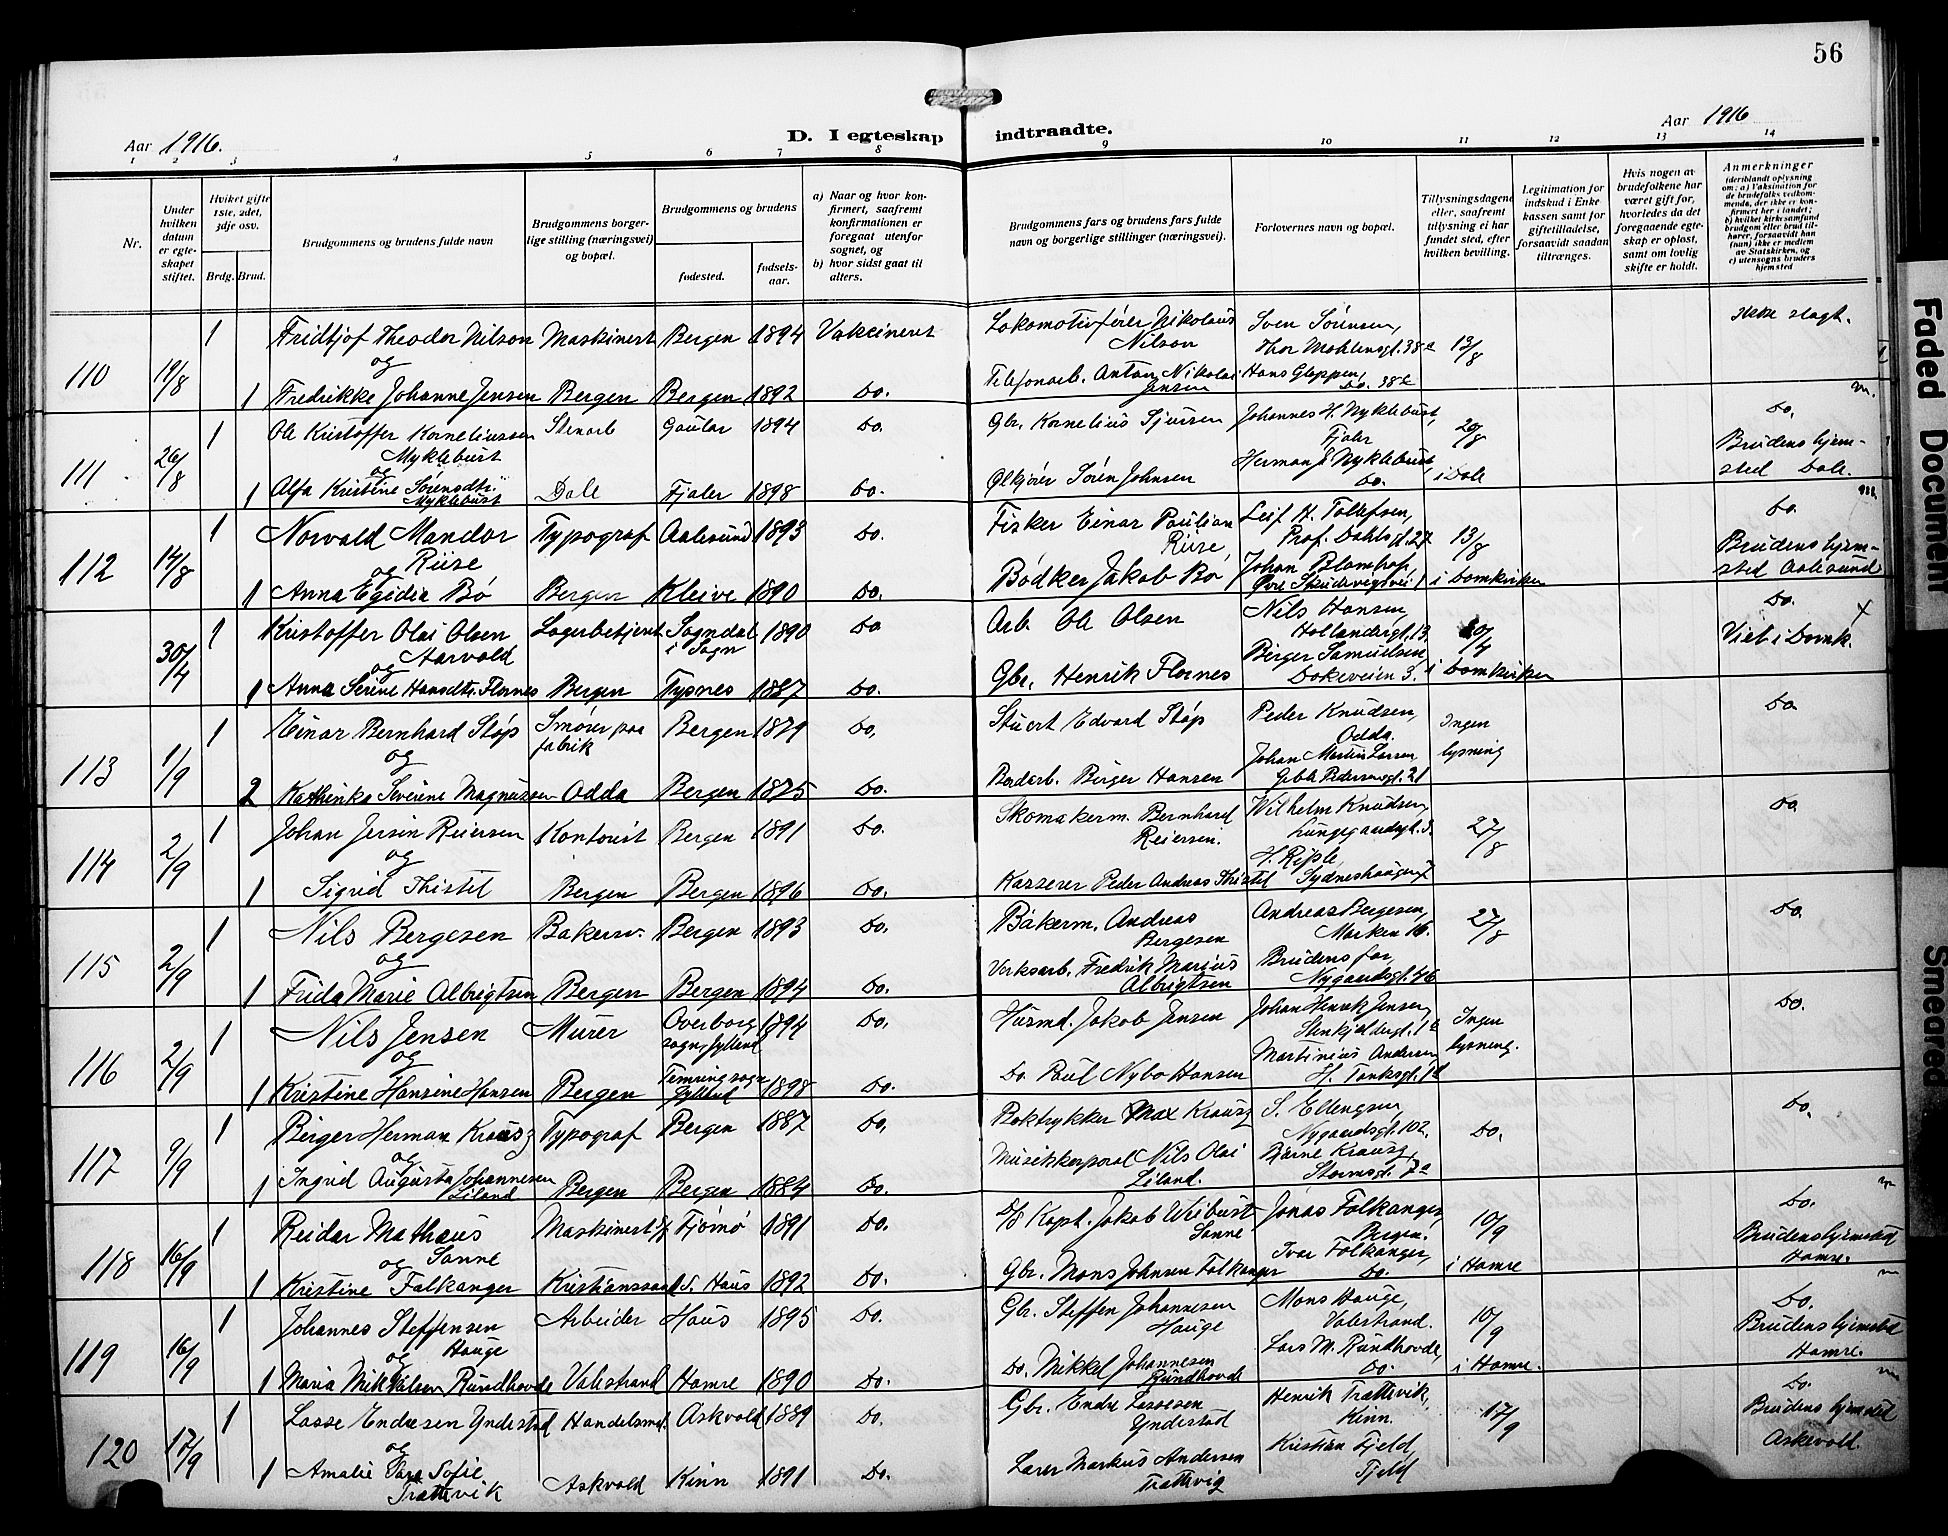 56
Aar 1916.
D. I egteskap indtraadte.
Aar 1916
1 2 3 4 5 6 7 8 9 10 11 12 13 14
Nr.
Under hvilken datum er egteskapet stiftet.
Hviket gifte 1ste, 2det, 3dje osv.
Brdg. Brud.
Brudgommens og brudens fulde navn
Brudgommens borgerlige stilling (næringsvei) og bopæl.
Brudgommens og brudens
fødested.
fødselsaar.
a) Naar og hvor konfirmert, saafremt konfirmationen er foregaat utenfor sognet, og
b) hvor sidst gaat til alters.
Brudgommens fars og brudens fars fulde navn og borgerlige stillinger (næringsvei).
Forlovernes navn og bopæl.
Tillysningsdagene eller, saafremt tillysning ei har fundet sted, efter hvilken bevilling.
Legitimation for indskud i Enkekassen samt for giftetilladelse, forsaavidt saadan tiltrænges.
Hvis nogen av brudefolkene har været gift før, hvorledes da det foregaaende egteskap er opløst, samt om lovlig skifte er holdt.
Anmerkninger
(deriblandt oplysning om: a) Vaksination for de brudefolks vedkommende, der ikke er konfirmert her i landet; b) hvilket kirkesamfund brudgom eller brud tilhører, forsaavidt han (hun) ikke er medlem av Statskirken, og c) utensogns bruders hjemsted
110 19/8 1 Fridtjof Theodor Nilson Maskinert Bergen 1894 Vakcineret Lokomotivfører Nikolaus Nilson Sven Sörensen, Thor Möhlensgt. 38a 13/8 Ikke slegt.
og
1 Fredrikke Johanne Jensen Bergen Bergen 1892 Do. Telefonarb. Anton Nikolai Jensen Hans Gloppen, Do. 38c
111 26/8 1 Ole Kristoffer Korneliussen Myklebust Stenarb Gaular 1894 Do. Gbr. Kornelius Sjursen Johannes H. Myklebust, Fjaler 20/8 Do.
og
1 Alfa Kristine Sørensdtr. Myklebust Dale Fjaler 1898 Do. Ølkjører Søren Johnsen Herman Myklebust, Do. i Dale Brudens hjemsted Dale.
112 14/8 1 Norvald Mandor Riise Typograf Aalesund 1893 Do. Fisker Einar Paulian Riise, Leif H. Tollefsen, Prof. Dahlsgt. 27 13/8 Do.
og
1 Anna Egidia Bö Bergen Kleive 1890 Do. Bödker Jakob Bö Johan Blomhop, Övre Skudevigsvei 1 i Domkirken Brudens hjemsted Aalesund
30/4 1 Kristoffer Olai Olsen Aarvold Lagerbetjent Sogndal i Sogn 1890 Do Arb. Ole Olsen Nils Hansen, Hollendergt. 13. 30/4 Do.
og
1 Anna Serine Hansdtr. Flornes Bergen Tysnes 1887 Do. Gbr. Henrik Flornes Birger Samuelsen Dokeveien 3. i Domkirken Viet i Domk.
113 1/9 1 Einar Bernhard Støp Smörer paa fabrik Bergen 1879 Do. Stuert Edvard Støp Peder Knudsen, Odda. Ingen lysning Do
og
2 Kathinka Severine Magnussen Odda Bergen 1875 Do. Bordarb. Birger Hansen Johan Martin Larsen Gble Pedersensgt. 21
114 2/9 1 Johan Jersin Reiersen Kontorist Bergen 1891 Do. Skomakerm. Bernhard Reiersen. Wilhelm Knudsen, Lungegaardsgt. 3. 27/8 Do
og
1 Sigrid Thistel Bergen Bergen 1896 Do. Kasserer Peder Andreas Thistel H. Risle, Sydneshaugen 7
115 2/9 1 Nils Bergesen Bakersv. Bergen 1893 Do. Bakerm. Andreas Bergesen Andreas Bergesen, Marken 16. 27/8 Do.
og
1 Frida Marie Albrigtsen Bergen Bergen 1894 Do. Verksarb. Fredrik Marius Albrigtsen Brudens far, Nygaardsgt. 46
116 2/9 1 Nils Jensen Murer Overborg sogn, Jylland 1894 Do. Husmd. Jakob Jensen Johan Henrik Jensen, Stenkjeldergt. 1c Ingen lysning. Do.
og
1 Kristine Hansine Hansen Bergen Temring sogn Jylland 1898 Do. Do. Paul Nybo Hansen Martinius Andersen, H. Tanksgt. 1d
117 9/9 1 Birger Herman Krausz Typograf Bergen 1887 Do. Boktrykker Max Krausz S. Ellengsen, Nygaardsgt. 102. Do. Do.
og
1 Ingrid Augusta Johannesen Liland Bergen Bergen 1884 Do. Musikkorporal Nils Olai Liland. Bjarne Krausz, Stormsgt. 7a
118 16/9 1 Reidar Mathaus Sanne Maskinert Tjömö 1891 Do. D/S Kapt. Jakob Weibust Sanne Jonas Falkanger, Bergen. 10/9 Do.
og
1 Kristine Falkanger Kristianssand S. Haus 1892 Do. Gbr. Mons Johnsen Falkanger Ivar Falkanger, Do. i Hamre Brudens hjemsted Hamre.
119 16/9 1 Johannes Steffensen Hauge Arbeider Haus 1895 Do. Gbr. Steffen Johannesen Hauge Mons Hauge, Valestrand. 10/9 Do.
og
1 Maria Mikkalsen Rundhovde Valestrand Hamre 1890 Do. Do. Mikkel Johannesen Rundhovde Lars M. Rundhovde, Do. i Hamre. Brudens hjemsted Hamre.
120 17/9 1 Lasse Endresen Yndestad Handelsmd. Askvold 1889 Do. Gbr. Endre Lassesen Yndestad Henrik Trættevik, Kinn. 17/9 Do.
og
1 Amalie Sofie Trættevik Askvold Kinn 1891 Do. Lærer Markus Andersen Trættevig Kristian Fjeld, Fjeld Brudens hjemsted Askevold.
Faded Document
Smeared